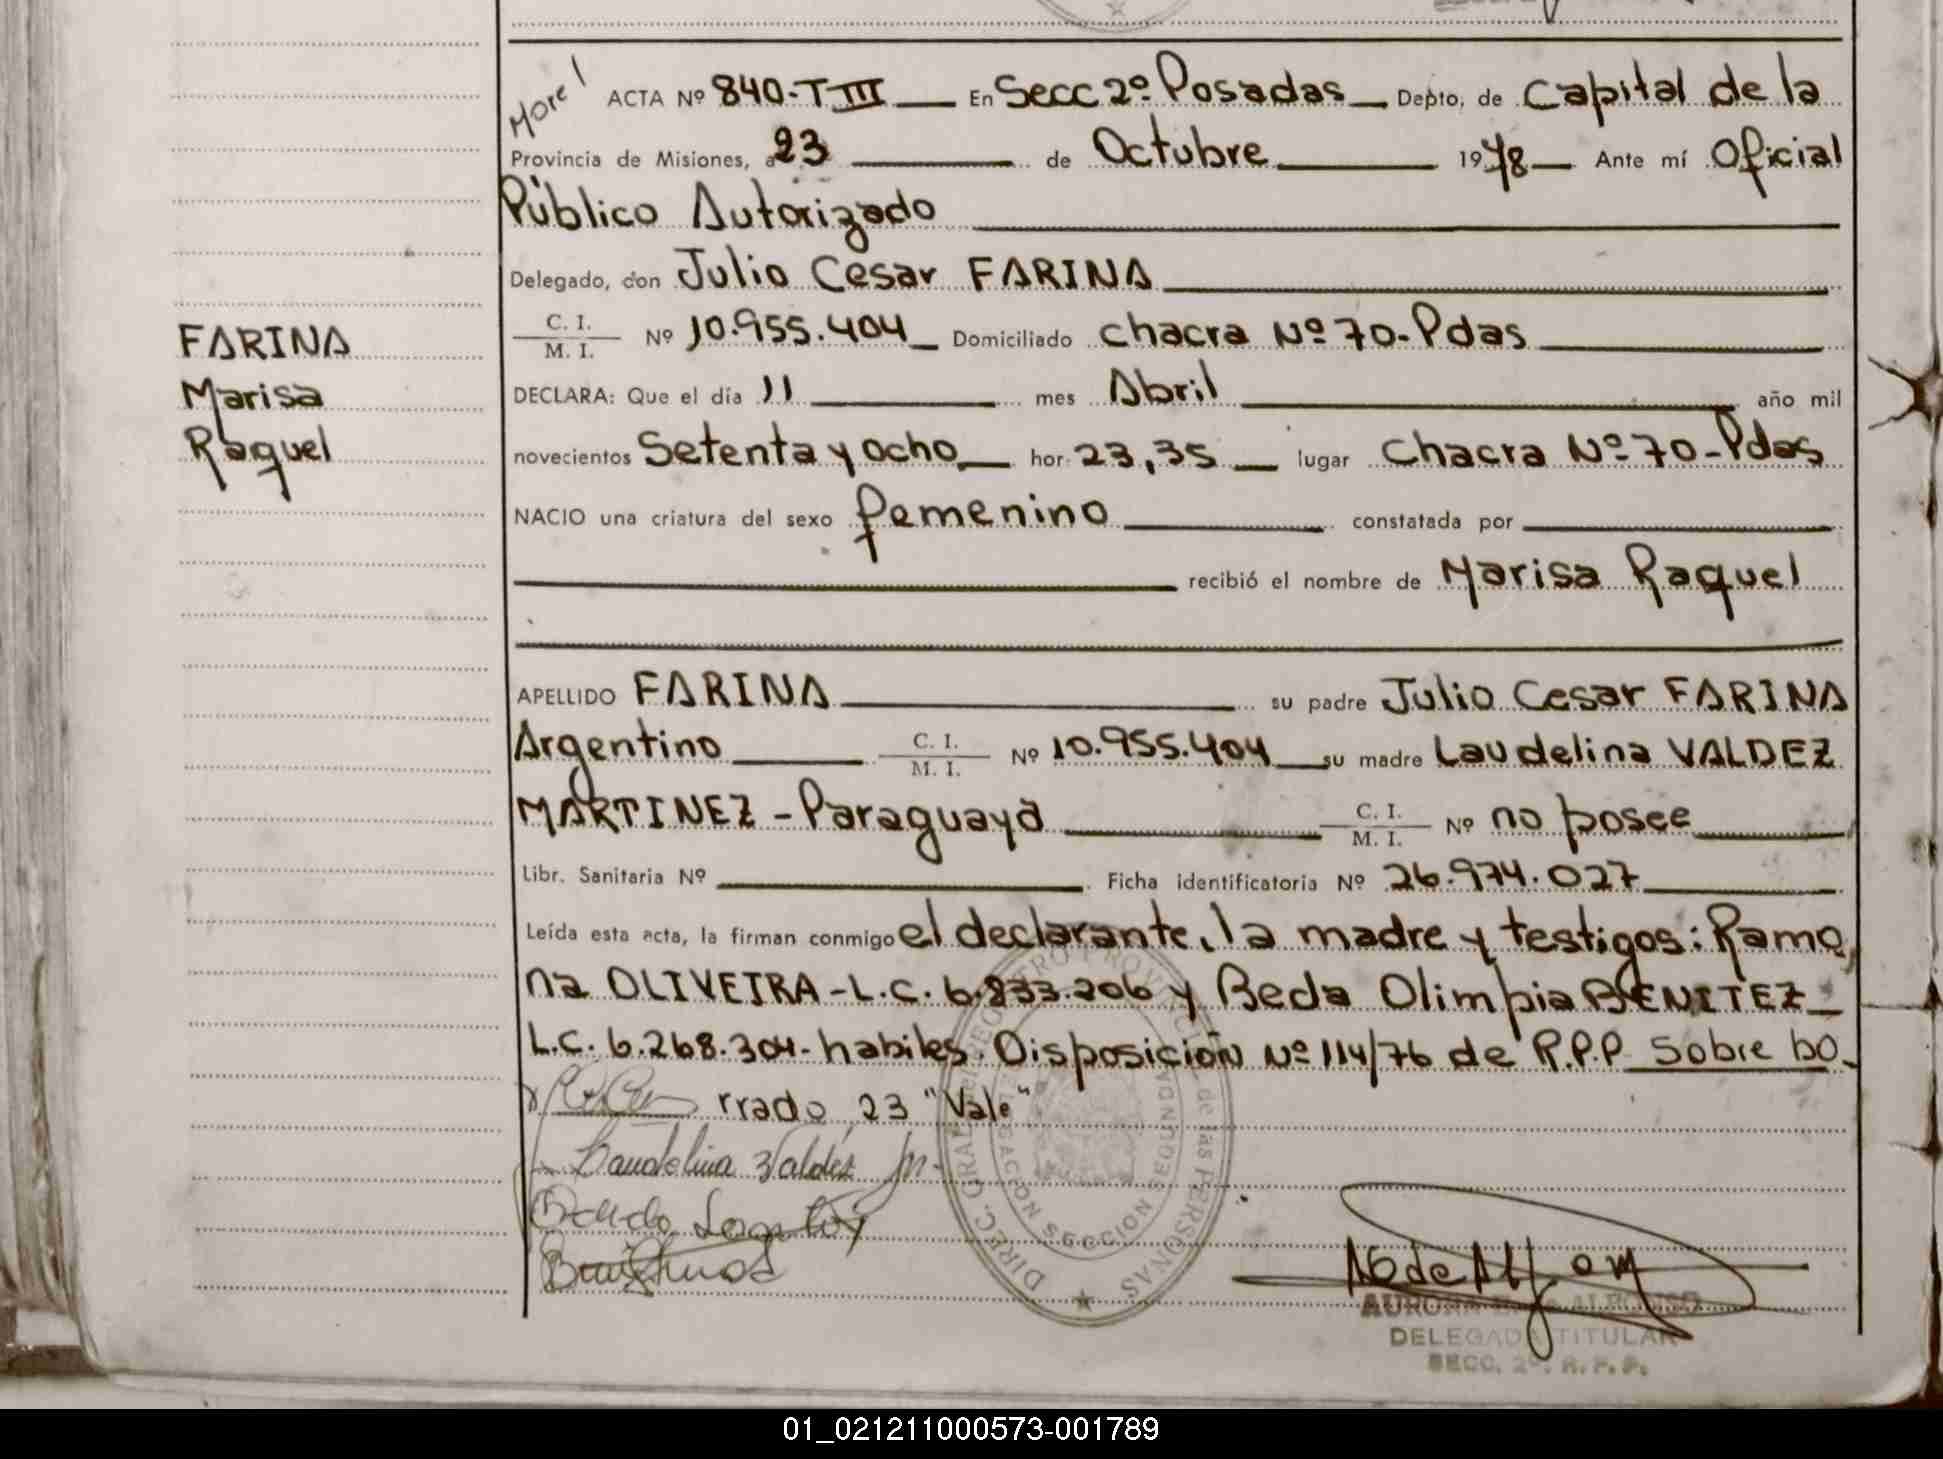 More!
ACTA Nº 840-T III En Secc 2º Posadas Depto. de Capital de la
Provincia de Misiones, a 23 de Octubre 1978 Ante mí Oficial
Público Autorizado
Delegado, don Julio Cesar FARINA
C. I.
M. I.
Nº 10.955.404 Domiciliado chacra Nº 70-Pdas
FARINA
Marisa
Raquel
DECLARA: Que el día 11 mes Abril año mil
novecientos Setenta y ocho hor. 23,35 lugar Chacra Nº 70-Pdas
NACIO una criatura del sexo femenino constatada por
recibió el nombre de Marisa Raquel
APELLIDO FARINA su padre Julio Cesar FARINA
Argentino C. I. M. I. Nº 10.955.404 su madre Laudelina VALDEZ
MARTINEZ - Paraguaya C. I. M. I. Nº no posee
Libr. Sanitaria Nº Ficha identificatoria Nº 26.974.027
Leída esta acta, la firman conmigo el declarante, la madre y testigos: Ramo
na OLIVEIRA - L.C. 6.833.206 y Beda Olimpia BENITEZ
L.C. 6.268.304 - habiles. Disposición Nº 114/76 de R.P.P. Sobre bo-
rrado 23 "Vale"
Laudelina Valdéz M.
DIREC. GRAL. del REGISTRO PROVINCIAL de las PERSONAS
SECCION SEGUNDA
AURORA ALFONSO
DELEGADA TITULAR
SECC. 2º. R. P. P.
01_021211000573-001789